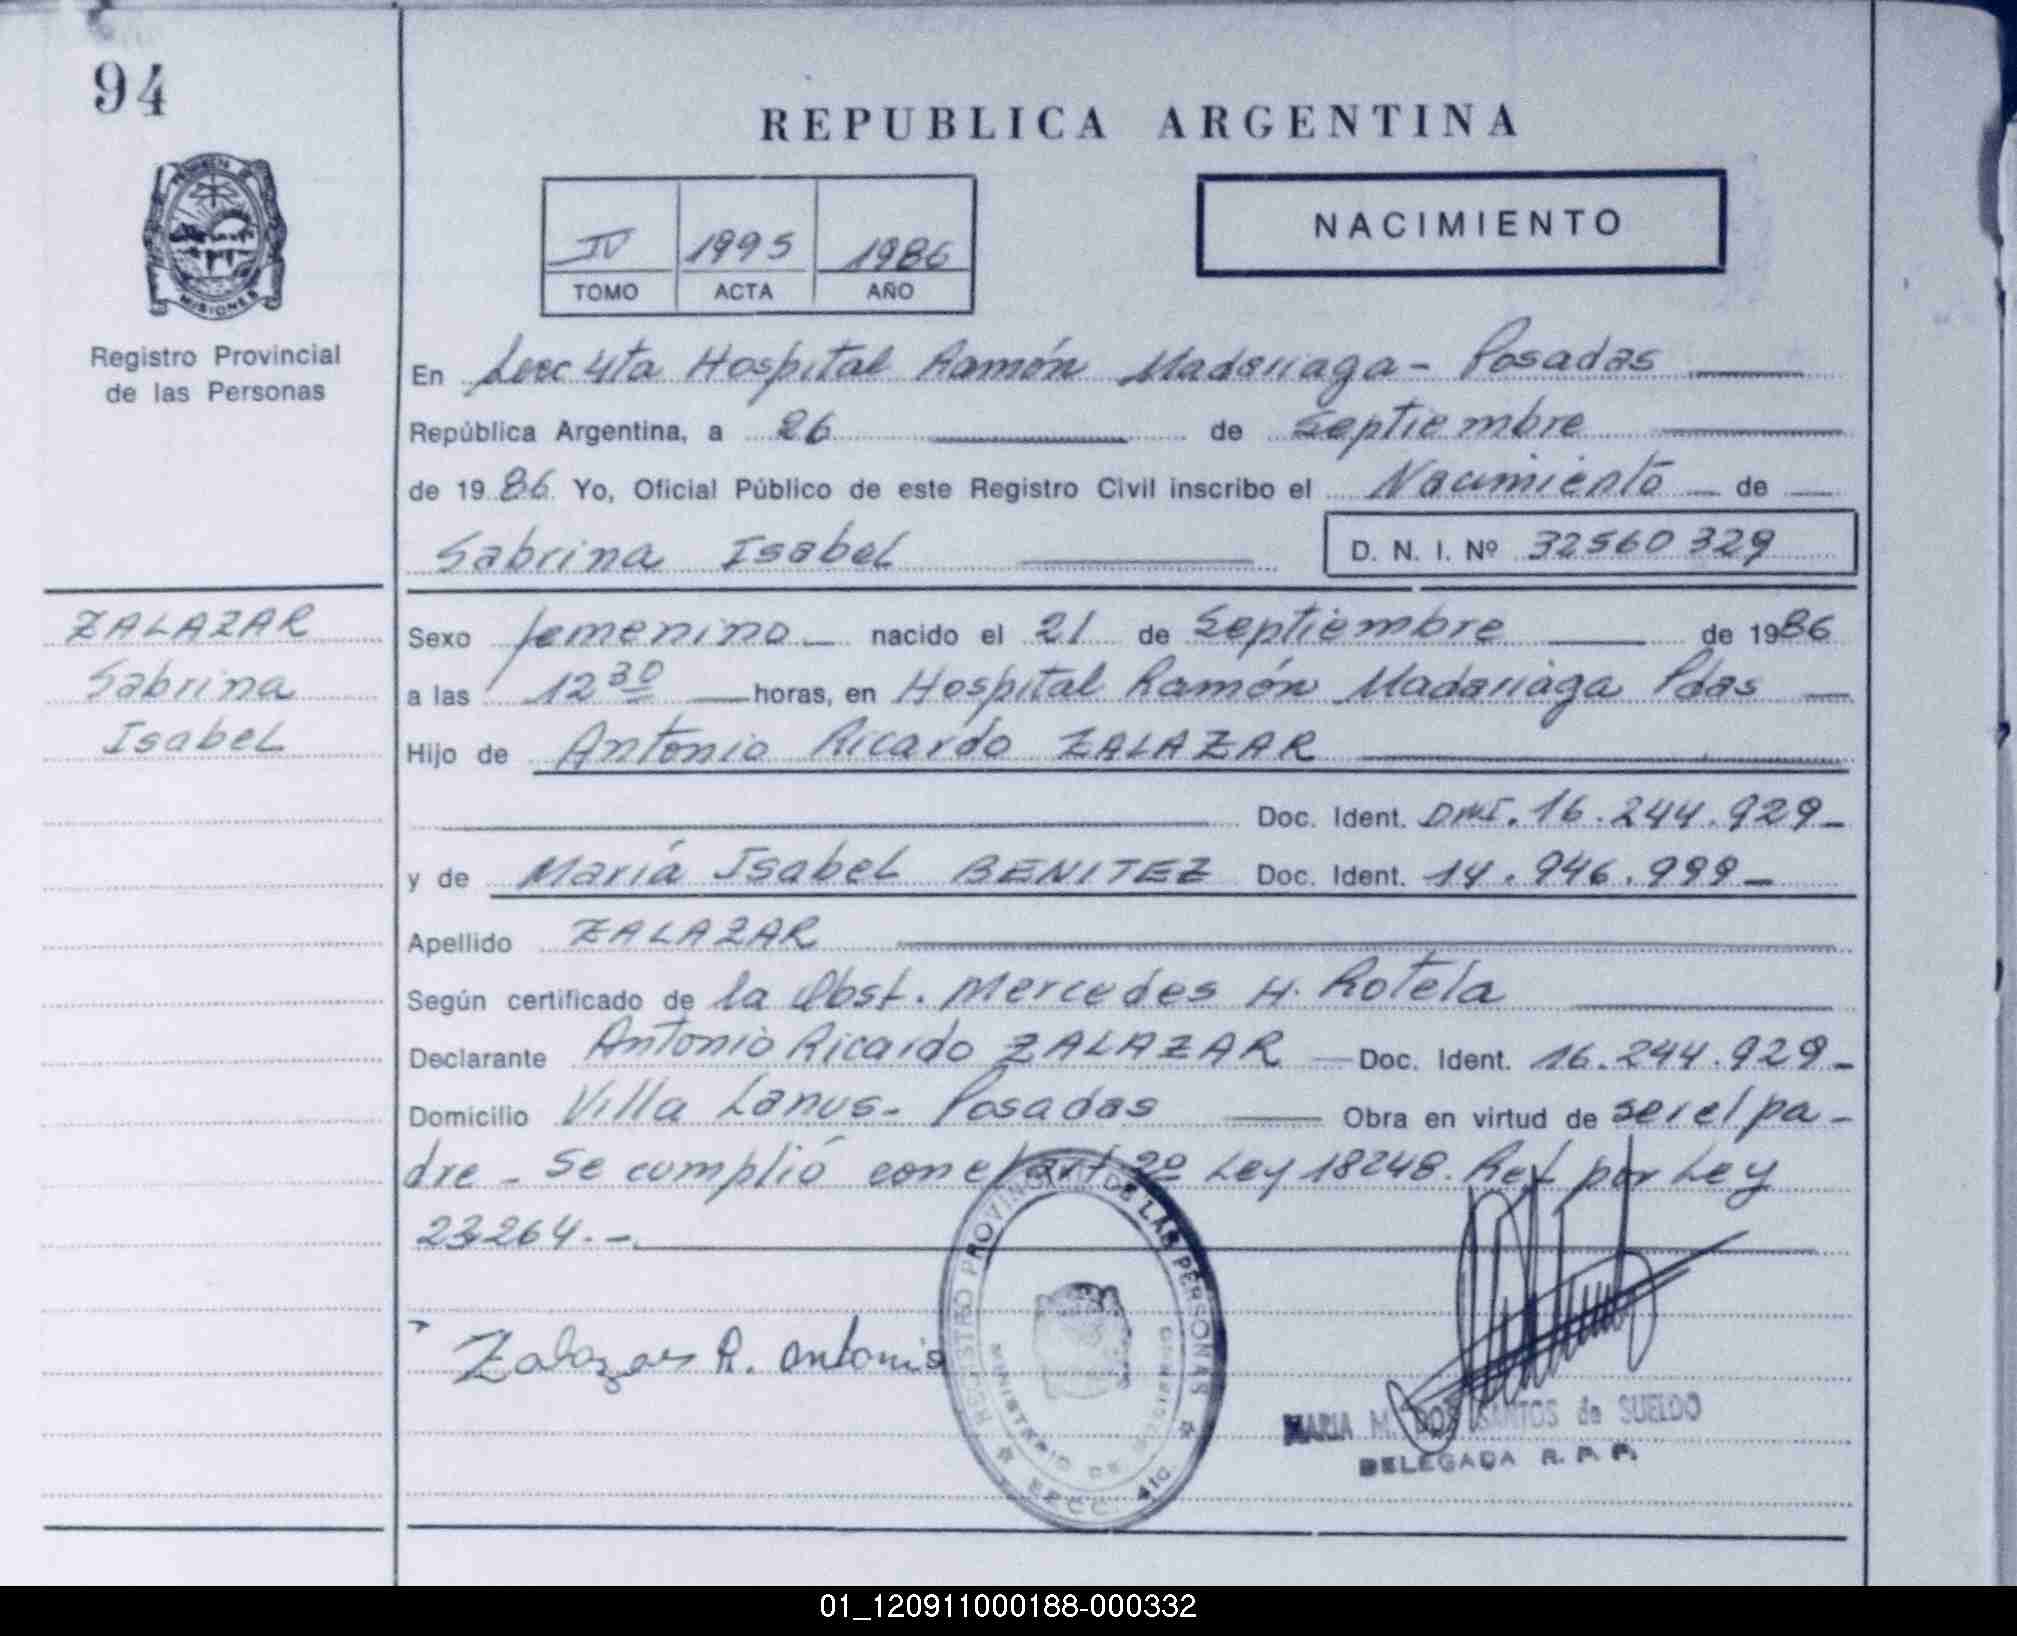 94
REPUBLICA ARGENTINA
NACIMIENTO
IV 1995 1986
TOMO ACTA AÑO
MISIONES
Registro Provincial
de las Personas
En Secc 4ta Hospital Ramón Madariaga - Posadas
República Argentina, a 26 de Septiembre
de 1986 Yo, Oficial Público de este Registro Civil inscribo el Nacimiento de
Sabrina Isabel D. N. I. Nº 32560329
ZALAZAR
Sabrina
Isabel
Sexo femenino nacido el 21 de Septiembre de 1986
a las 12 30 horas, en Hospital Ramón Madariaga Pdas
Hijo de Antonio Ricardo ZALAZAR
Doc. Ident. DNI. 16.244.929-
y de María Isabel BENITEZ Doc. Ident. 14.946.999-
Apellido ZALAZAR
Según certificado de la Obst. Mercedes H. Rotela
Declarante Antonio Ricardo ZALAZAR Doc. Ident. 16.244.929-
Domicilio Villa Lanus- Posadas Obra en virtud de ser el pa-
dre - Se cumplió con el art 2º Ley 18248. Ref por Ley
23264.-
Zalazar R. Antonio
REGISTRO PROVINCIAL DE LAS PERSONAS
MINISTERIO DE GOBIERNO
4ta.
MARIA M. DOS SANTOS de SUELDO
DELEGADA R. P. P.
01_120911000188-000332